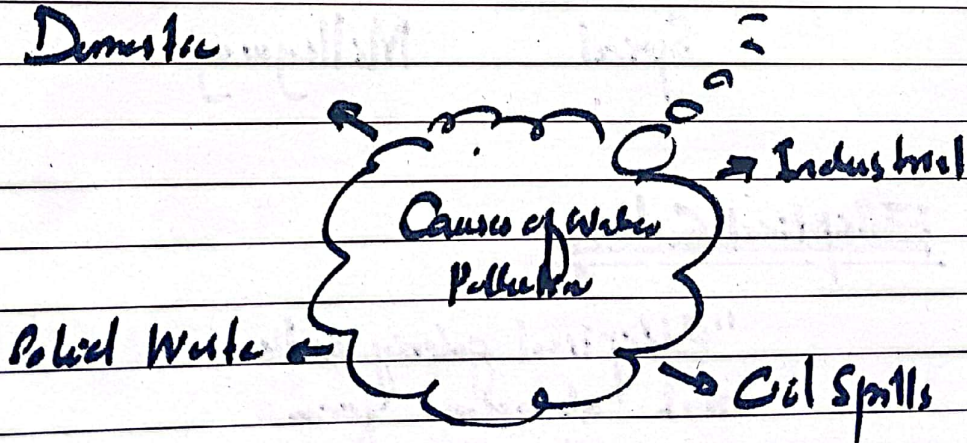 Domestic
Industrial
Causes of Water
Pollution
Solid Waste
Oil Spills